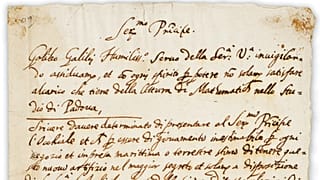 Ser.mo Principe.
Galileo Galilei Humiliss.o Servo della Ser.a V.a invigilan-
do assiduamente, et co ogni spirito p potere no solam. satisfare
al carico che tiene della Lettura di Mathematich nello stu-
dio di Padova,
Scrivere havere determinato di presentare al Ser.mo Principe
l'Occhiale et p essere di giovamento inestimabile p ogni
negozio et impresa marittima o terrestre stimo di tenere que-
sto nuovo artifizio nel maggior segreto et solam. a disposizione